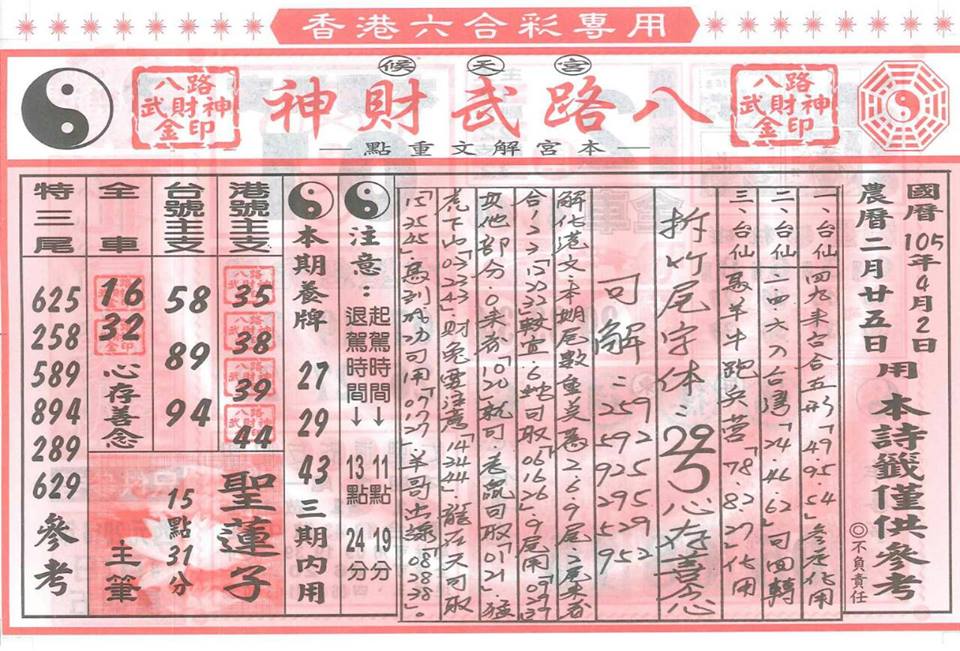 香港六合彩專用
候天宮
八路武財神
八路
武財神
金印
八路
武財神
金印
本宮解文重點
國曆105年4月2日
農曆二月廿五日
用
本詩籤僅供參考
◎不負責任
一、台仙
四九來台合五
「49.95.54」參老化用
二、台仙
二.四.六入台灣「24.46.62」可回轉
三、台仙
馬羊牛跑
「78.82.27」化用
拆竹尾字体:
心存善念
可解:259
592
925
295
529
952
解化港文.本期尾數重
2.6.9尾.2尾來看
合1.2.3「12.22.32」較宜.6蛇可取「06.16.26」.9尾用
其他部分.0來看「10.20」就可.老鼠可取「01.21」.猛
虎下山「03.23.43」.財兔要注意「14.34.44」.龍在天可取
「15.25.45」.馬到成功可用「07.17.27」.羊哥出線「08.28.38」。
注意:
起駕時間↓11點19分
退駕時間↓13點24分
本期養牌
27
29
43
三期內用
港號主支
35
38
39
44
台號主支
58
89
94
全車
16
32
心存善念
聖蓮子
15點31分
主筆
特三尾
625
258
589
894
289
629
參考